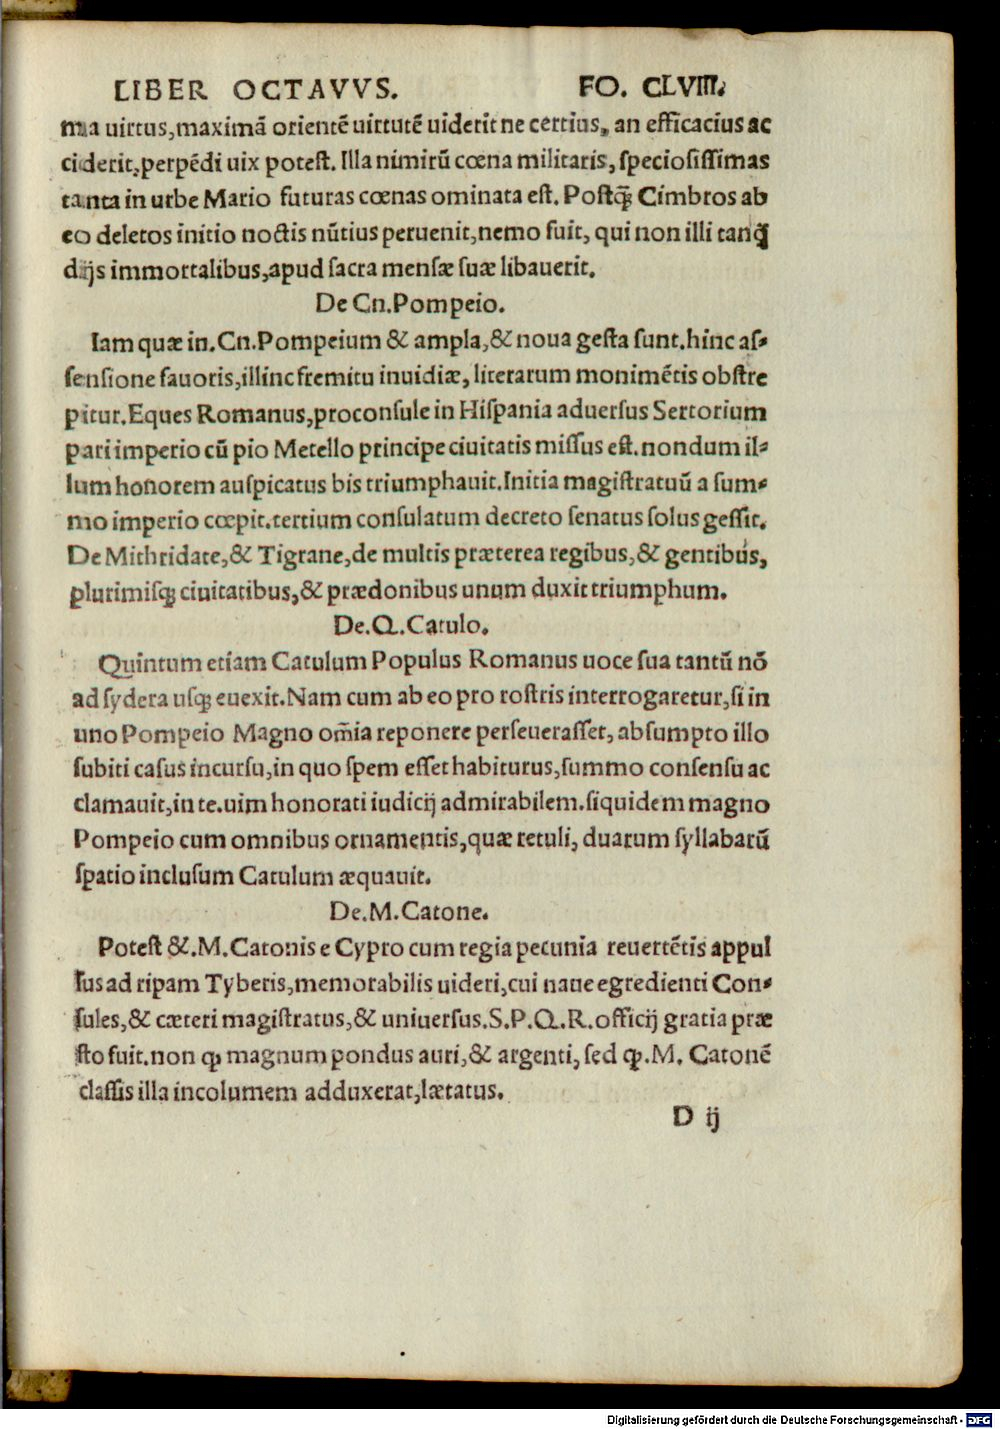 LIBER OCTAVVS. FO. CLVIII.
ma uirtus,maximā orientē uirtutē uiderit ne certius, an efficacius ac
ciderit,perpēdi uix potest. Illa nimirū cœna militaris, speciosissimas
tanta in urbe Mario futuras cœnas ominata est. Postq̄ Cimbros ab
eo deletos initio noctis nūtius peruenit,nemo fuit, qui non illi tanq̄
dijs immortalibus,apud sacra mensæ suæ libauerit.
De Cn.Pompeio.
Iam quæ in.Cn.Pompeium & ampla,& noua gesta sunt.hinc as-
sensione fauoris,illinc fremitu inuidiæ, literarum monimētis obstre
pitur.Eques Romanus,proconsule in Hispania aduersus Sertorium
pari imperio cū pio Metello principe ciuitatis missus est.nondum il-
lum honorem auspicatus bis triumphauit.Initia magistratuū a sum-
mo imperio cœpit.tertium consulatum decreto senatus solus gessit.
De Mithridate,& Tigrane,de multis præterea regibus,& gentibus,
plurimisq; ciuitatibus,& prædonibus unum duxit triumphum.
De.Q.Catulo.
Quintum etiam Catulum Populus Romanus uoce sua tantū nō
ad sydera usq; euexit.Nam cum ab eo pro rostris interrogaretur,si in
uno Pompeio Magno om̄ia reponere perseuerasset, absumpto illo
subiti casus incursu,in quo spem esset habiturus,summo consensu ac
clamauit,in te.uim honorati iudicij admirabilem.siquidem magno
Pompeio cum omnibus ornamentis,quæ retuli, duarum syllabarū
spatio inclusum Catulum æquauit.
De.M.Catone.
Potest &.M.Catonis e Cypro cum regia pecunia reuertētis appul
sus ad ripam Tyberis,memorabilis uideri,cui naue egredienti Con-
sules,& cæteri magistratus,& uniuersus.S.P.Q.R.officij gratia præ
sto fuit.non ꝙ magnum pondus auri,& argenti, sed ꝙ.M. Catonē
classis illa incolumem adduxerat,lætatus.
D ij
Digitalisierung gefördert durch die Deutsche Forschungsgemeinschaft - DFG